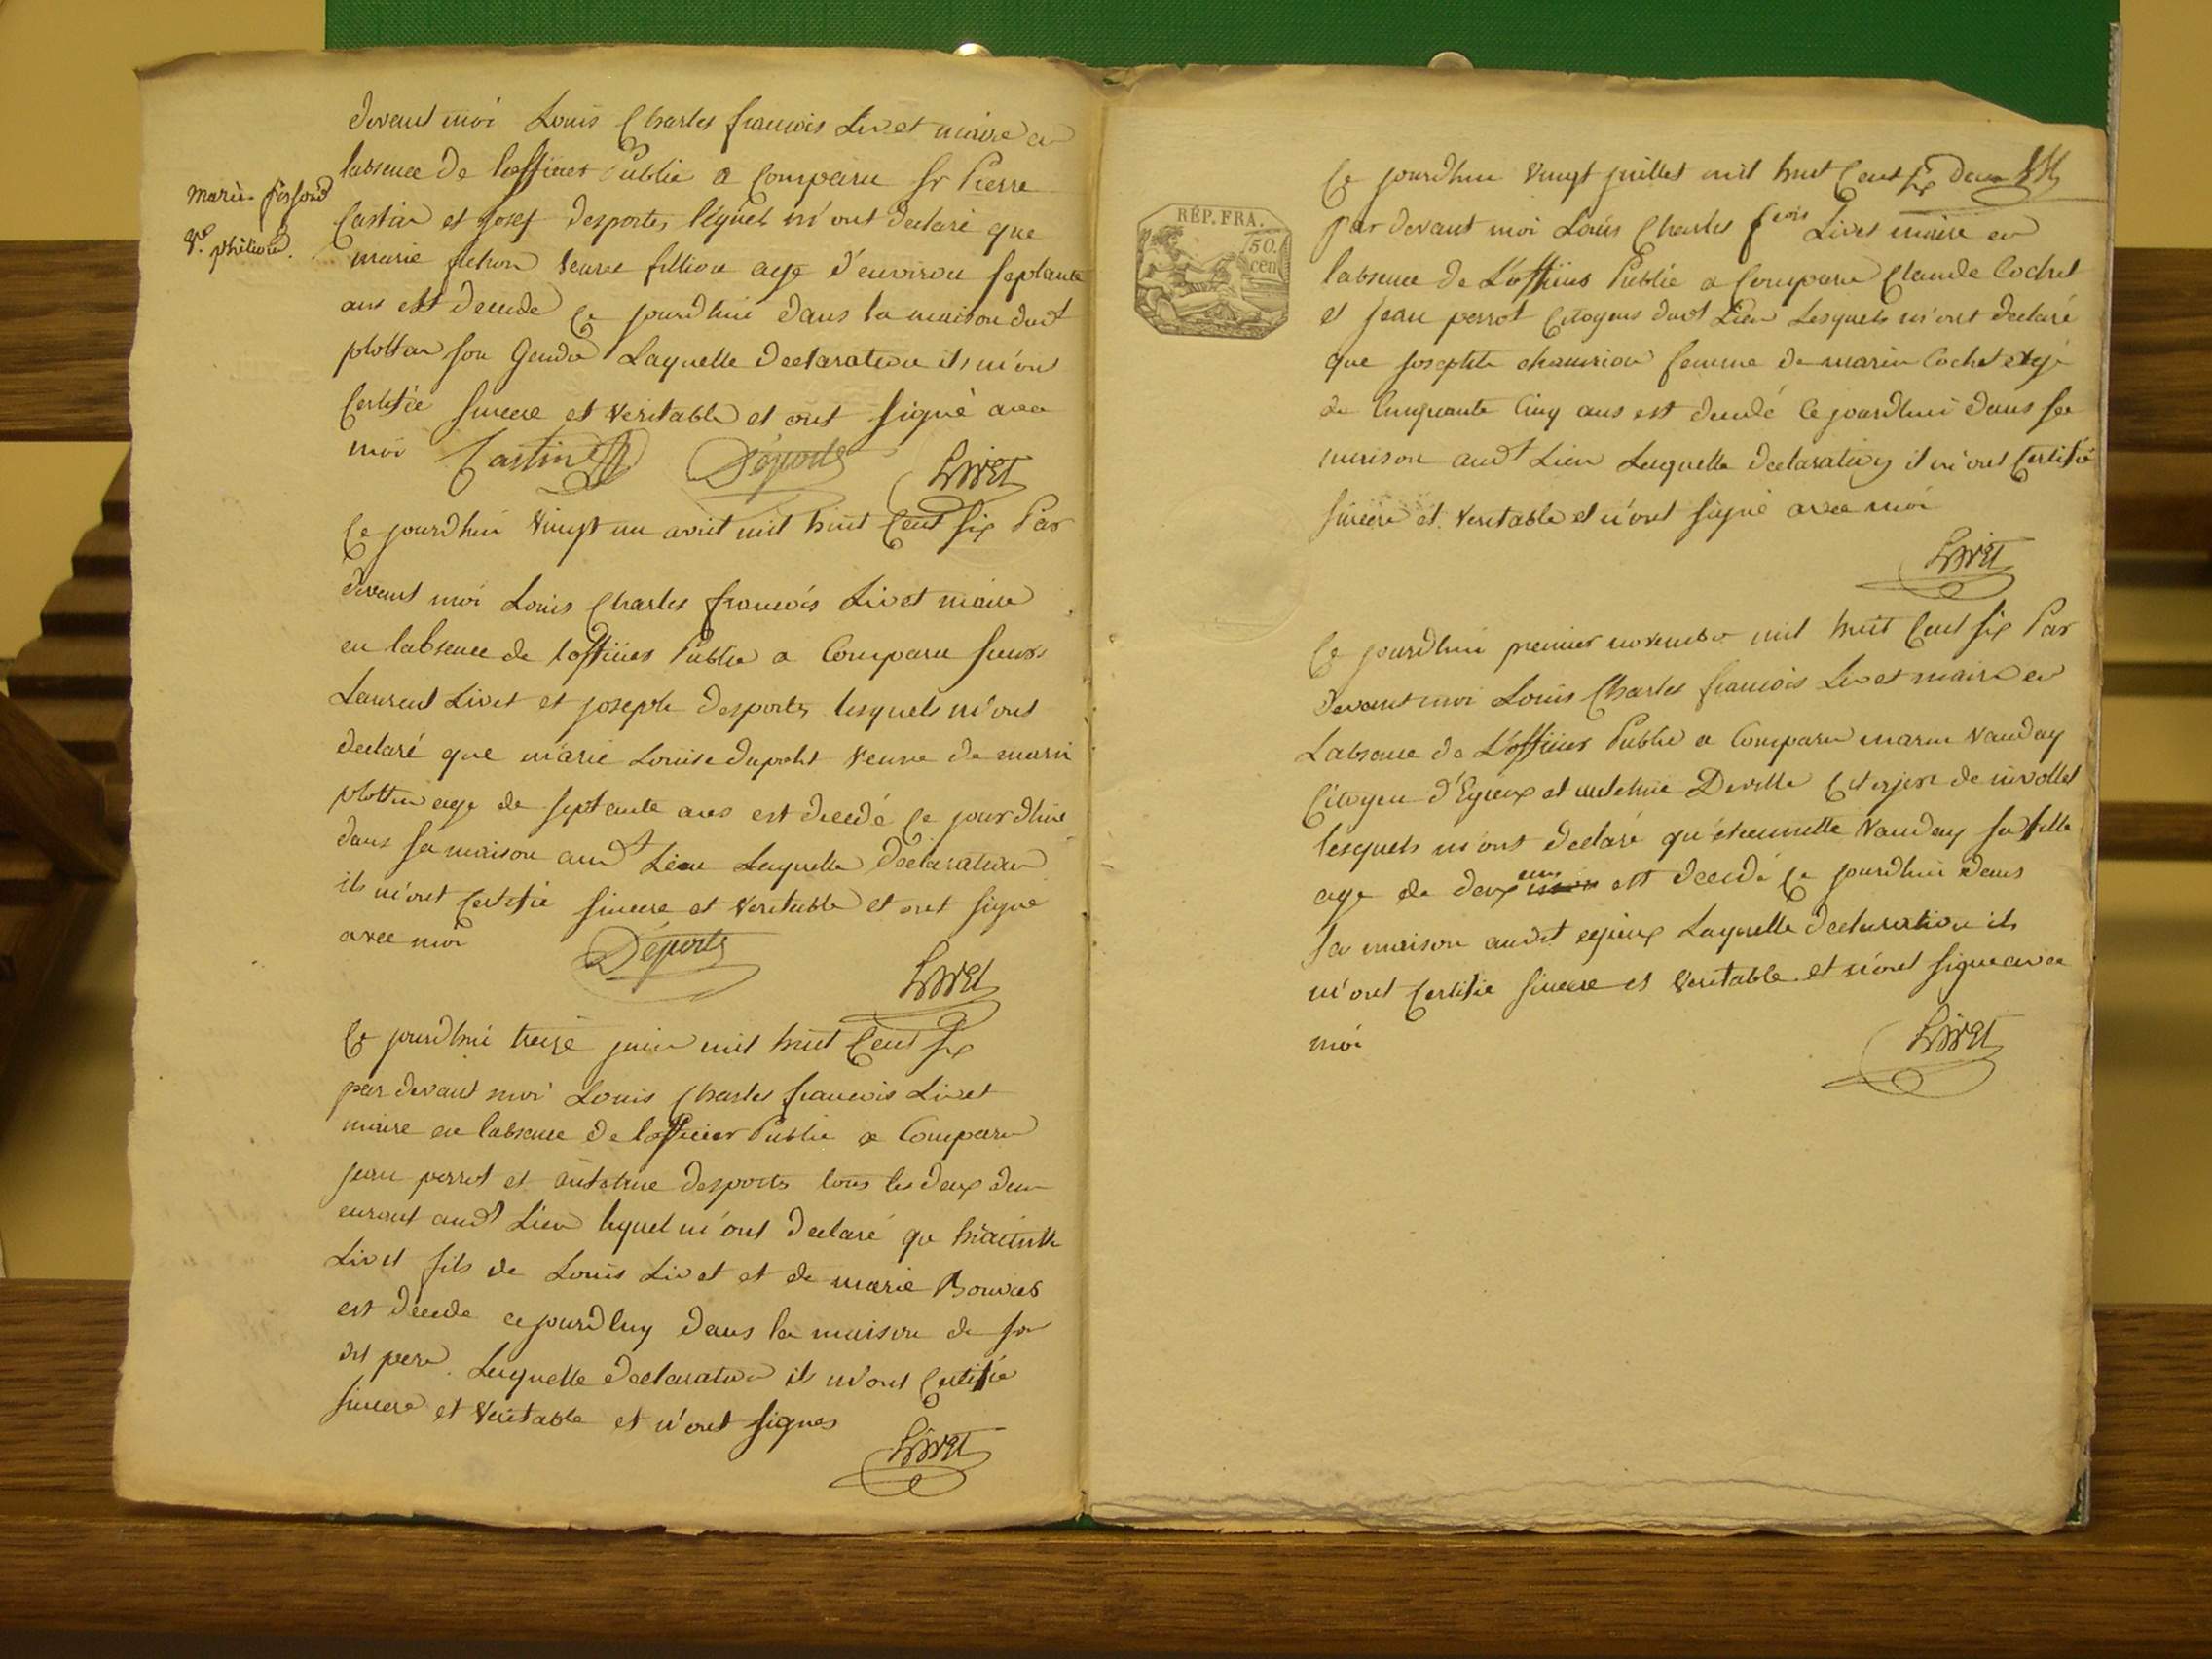 devant moi Louis Charles francois Livet maire en
labsence de lofficier Public a Comparu sr Pierre
Castin et josef desportes lequels m'ont declaré que
marie veuve fillion age d'environ septante
ans est decede ce jourdhui dans la maison dud
plottier son Gendre Laquelle declaration ils m'ont
Certifié sincere et veritable et ont signé avec
moi Castin Déporte Livet
marie
Ve. philion.
Ce jourdhui vingt un avril mil huit Cent six Par
devant moi Louis Charles francois Livet maire
en labsence de lofficier Public a Comparu sieurs
Laurent Livet et joseph desportes lesquels m'ont
declaré que marie Louise veuve de marin
plottier age de septante ans est decedé ce jourdhui
dans sa maison aud Lieu Laquelle declaration
ils m'ont Certifié sincere et veritable et ont signe
avec moi Déporte Livet
Ce jourdhui treize juin mil huit Cent six
par devant moi Louis Charles francois Livet
maire en labsence de lofficier Public a Comparu
jean perrot et antoine desportes tous les deux dem
eurant aud Lieu lequel m'ont declaré que hiacinthe
Livet fils de Louis Livet et de marie
est decede cejourdhuy dans la maison de son
dit pere. Laquelle declaration ils m'ont Certifié
sincere et veritable et n'ont signes
Livet
RÉP. FRA.
50.
cen
Ce jourdhui vingt juillet mil huit Cent six
Par devant moi Louis Charles fcois Livet maire en
labsence de Lofficier Public a Comparu Claude Cochet
et jean perrot Citoyens dud Lieu Lesquels m'ont declaré
que josephte femme de marin Cochet agé
de Cinquante Cinq ans est decedé Ce jourdhui dans sa
maison aud Lieu Laquelle declaration il m'ont Certifié
sincere et veritable et n'ont signé avec moi
Livet
Ce jourdhui premier novembre mil huit Cent six Par
devant moi Louis Charles francois Livet maire en
Labsence de Lofficier Public a Comparu marin vauday
Citoyen d'Epieux et antoine Deville Citoyen de nivollet
lesquels m'ont declaré qu'etiennette vauday sa fille
age de deux ans est decedé ce jourdhui dans
sa maison audit epieux Laquelle declaration ils
m'ont Certifié sincere et veritable et n'ont signe avec
moi
Livet